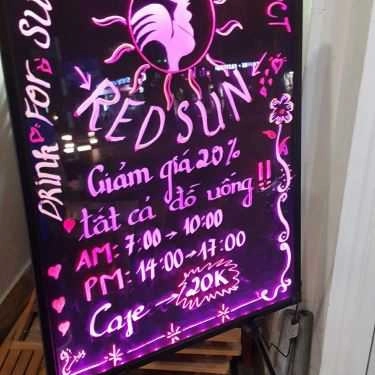 DRINK FOR SU
CT
RED SUN
Giảm giá 20%
tất cả đồ uống!!
AM: 7:00 → 10:00
PM: 14:00 → 17:00
Cafe → 20K